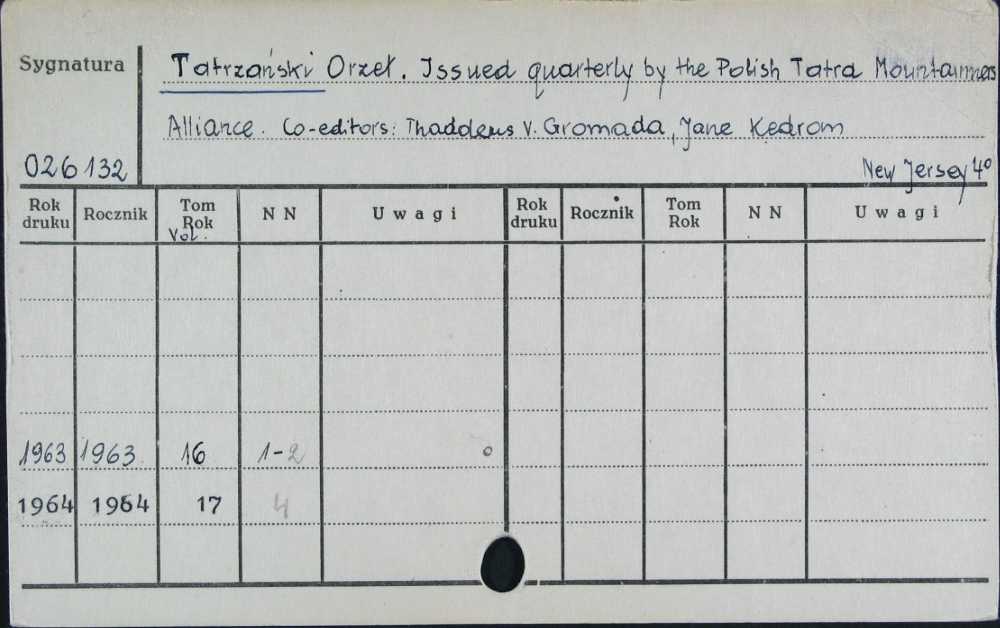 Sygnatura
Tatrzański Orzeł. Issued quarterly by the Polish Tatra Mountainners
Alliance. Co-editors: Thaddeus V. Gromada, Jane Kedrom
026132
New Jersey 4°
Rok druku Rocznik Tom Rok Vol. N N Uwagi Rok druku Rocznik Tom Rok N N Uwagi
1963 1963 16 1-2
1964 1964 17 4